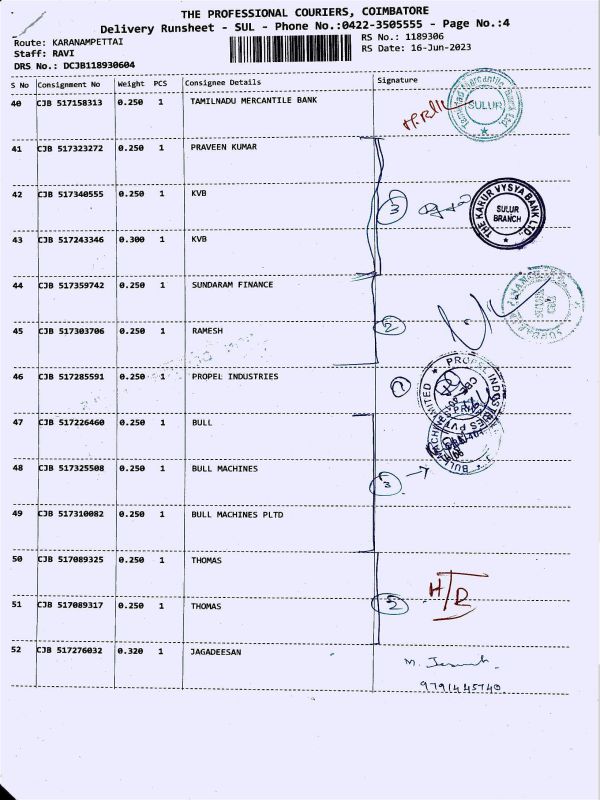 THE PROFESSIONAL COURIERS, COIMBATORE
Delivery Runsheet - SUL - Phone No.:0422-3505555 - Page No.:4
Route: KARANAMPETTAI RS No.: 1189306
Staff: RAVI RS Date: 16-Jun-2023
DRS No.: DCJB118930604
S No Consignment No Weight PCS Consignee Details Signature
40 CJB 517158313 0.250 1 TAMILNADU MERCANTILE BANK
SULUR
41 CJB 517323272 0.250 1 PRAVEEN KUMAR
42 CJB 517340555 0.250 1 KVB
3
THE KARUR VYSYA BANK LTD
SULUR
BRANCH
43 CJB 517243346 0.300 1 KVB
44 CJB 517359742 0.250 1 SUNDARAM FINANCE
45 CJB 517303706 0.250 1 RAMESH
2
46 CJB 517285591 0.250 1 PROPEL INDUSTRIES
1
PROPEL INDUSTRIES PVT LIMITED
47 CJB 517226460 0.250 1 BULL
48 CJB 517325508 0.250 1 BULL MACHINES
3
BULL MACHINES
49 CJB 517310082 0.250 1 BULL MACHINES PLTD
50 CJB 517089325 0.250 1 THOMAS
51 CJB 517089317 0.250 1 THOMAS
2
52 CJB 517276032 0.320 1 JAGADEESAN
9791445740